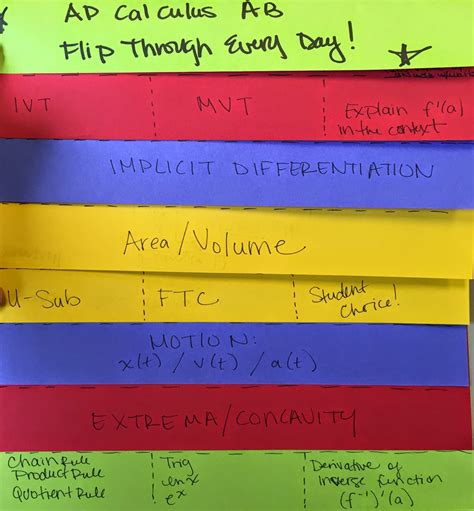 AP Calculus AB
Flip Through Every Day!
IVT
MVT
Explain f'(a)
in the context
IMPLICIT DIFFERENTIATION
Area/Volume
U-Sub
FTC
Student
Choice!
MOTION:
x(t) / v(t) / a(t)
EXTREMA/CONCAVITY
Chain Rule
Product Rule
Quotient Rule
Trig
lnx
e^x
Derivative of
Inverse function
(f⁻¹)'(a)